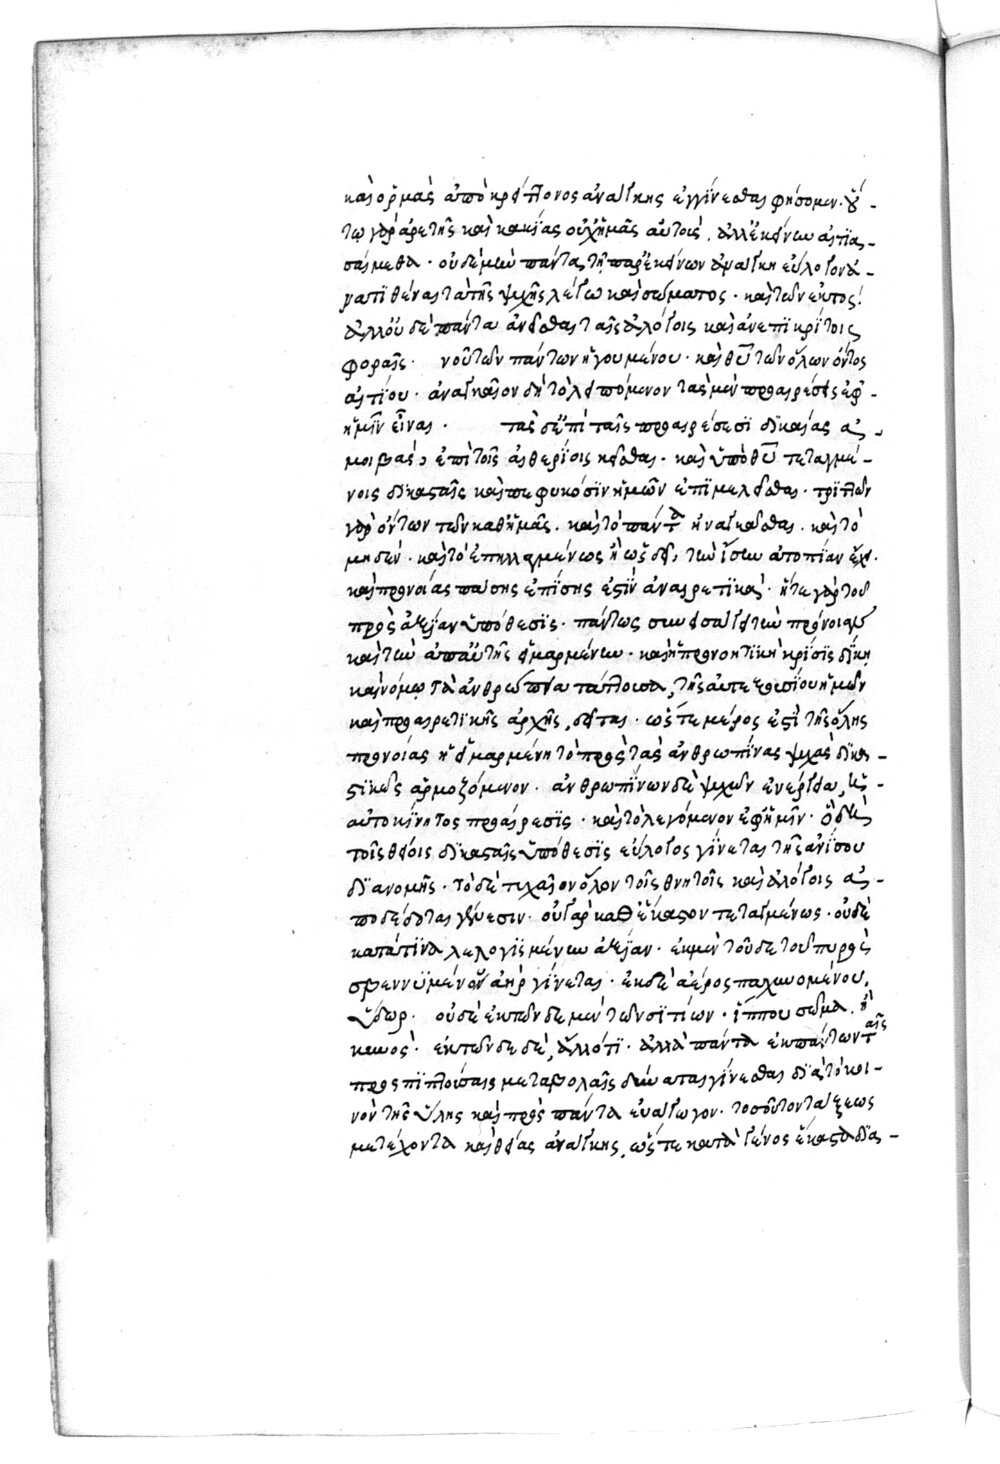 καὶ ὁρμὰς ἀπὸ κρείττονος ἀνάγκης ἐγγίνεσθαι φήσομεν. οὕ-
τω γὰρ ἀρετῆς καὶ κακίας οὐχ ἡμᾶς αὐτοὺς, ἀλλ' ἐκείνων αἰτια-
σόμεθα. οὐδὲ μὴν πάντας τῇ παρ' ἐκείνων ἀνάγκῃ εὔλογον ἀ-
νατιθέναι τὰ τῆς ψυχῆς λέγω καὶ σώματος. καὶ τῶν ἐκτός.
ἀλλ' οὐδὲ πάντα ἀνεῖσθαι ταῖς ἀλόγοις καὶ ἀνεπικρίτοις
φοραῖς. νοῦ τῶν πάντων ἡγουμένου. καὶ θεοῦ τῶν ὅλων ὄντος
αἰτίου. ἀναγκαῖον δὴ τὸ λειπόμενον τὰς μὲν προαιρέσεις ἐφ'
ἡμῖν εἶναι. τὰς δὲ ἐπὶ ταῖς προαιρέσεσι δικαίας ἀ-
μοιβὰς ἐπὶ τοῖς αἰθερίοις κεῖσθαι. καὶ ὑπὸ θεοῦ τεταγμέ-
νοις δικασταῖς καὶ πεφυκόσιν ἡμῶν ἐπιμελεῖσθαι. τριπλῶν
γὰρ ὄντων τῶν καθ' ἡμᾶς. καὶ τὸ πάντα ἠναγκάσθαι. καὶ τὸ
μηδέν. καὶ τὸ ἐπηλλαγμένως ἢ ὡς δεῖ, τὴν ἴσην ἀτοπίαν ἔχει.
καὶ προνοίας πάσης ἐπίσης ἐστὶν ἀναιρετικά. ἥ τε γὰρ τοῦ
πρὸς ἀξίαν ὑπόθεσις. πάντως συνεισάγει τὴν πρόνοιαν
καὶ τὴν ἀπ' αὐτῆς εἱμαρμένην. καὶ ἡ προνοητικὴ κρίσις δίκῃ
καὶ νόμῳ τὰ ἀνθρώπινα τάττουσα, τῆς αὐτεξουσίου ἡμῶν
καὶ προαιρετικῆς ἀρχῆς, δεῖται. ὥστε μέρος ἐστὶ τῆς ὅλης
προνοίας ἡ εἱμαρμένη τὸ πρὸς τὰς ἀνθρωπίνας ψυχὰς δικα-
στικῶς ἁρμοζόμενον. ἀνθρωπίνων δὲ ψυχῶν
αὐτοκίνητος προαίρεσις. καὶ τὸ λεγόμενον ἐφ' ἡμῖν.
τοῖς θείοις δικασταῖς ὑπόθεσις εὔλογος γίνεται τῆς ἀνίσου
διανομῆς. τὸ δὲ τυχαῖον ὅλον τοῖς θνητοῖς καὶ ἀλόγοις ἀ-
ποδέδοται γένεσιν. οὐ γὰρ καθ' ἕκαστον τεταγμένως. οὐδὲ
κατά τινα λελογισμένην ἀξίαν. ἐκ μὲν τοῦδε τοῦ πυρὸς
σβεννυμένου ἀὴρ γίνεται. ἐκ δὲ ἀέρος παχυνομένου,
ὕδωρ. οὐδὲ ἐκ τῶνδε μὲν τῶν σιτίων. ἵππου σῶμα. ἢ
κυνός. ἐκ τῶνδε δὲ, ἄλλό τι. ἀλλὰ πάντα ἐκ πάντων ταῖς
προσπιπτούσαις μεταβολαῖς δύναται γίνεσθαι διὰ τὸ κοι-
νὸν τῆς ὕλης καὶ πρὸς πάντα εὐάγωγον. τοσοῦτον τάξεως
μετέχοντα καὶ θείας ἀνάγκης, ὥστε κατὰ γένος ἕκαστα δια-